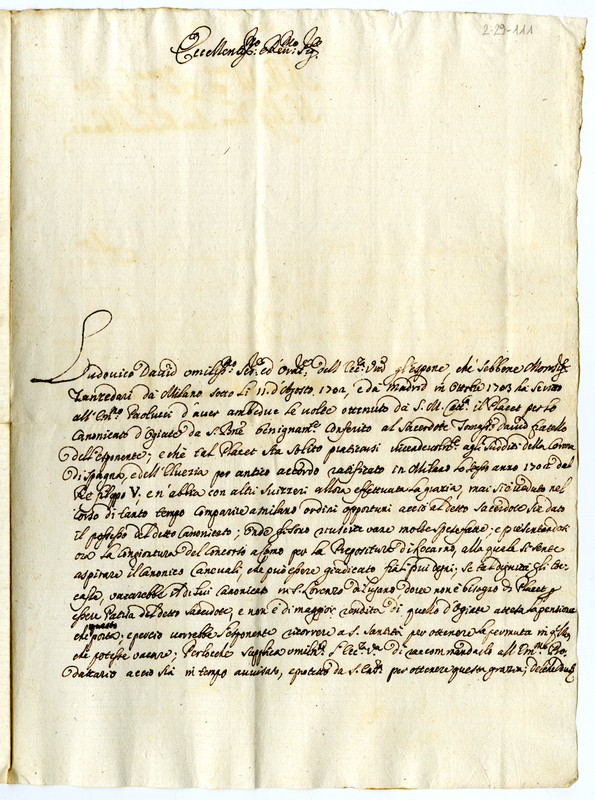 2-29-111
Eccellentis.mo e Rev.mo Sig.re
Ludovico David umiliss.mo Ser.re ed Orat.re dell'Ecc.za V.ra gl'espone, che sebbene Monsig.r
Zanzedari da Milano sotto li 11. d'Agosto 1702, e da Madrid in Ottobre 1703 ha scritto
all'Em.mo Paolucci d'aver ambedue le volte ottenuto da S. M. Catt.ca il Placet per lo
Canonicato d'Ogiate da S. B.ne benignam.te conferito al Sacerdote Tomaso David fratello
dell'esponente; e che tal Placet sia solito praticarsi vicendevolm.te agli sudditi della Corona
di Spagna, e dell'Elvezia per antico accordo ratificato in Milano lo stesso anno 1702 dal
Re Filippo V, e n'abbia con altri Svizzeri allora effettuata la grazia, mai si è veduto nel
corso di tanto tempo comparire a Milano ordini opportuni acciò al detto Sacerdote sia dato
il possesso del detto Canonicato; onde gli sono riuscite vane molte spese fatte; e presentandosi
ora la congiontura del concorso a Como per la Prepositura di Locarno, alla quale si sente
aspirare il Canonico che può essere giudicato fra li più degni; se tal dignità gli
vacarebbe il di lui Canonicato in S. Lorenzo di Lugano dove non è bisogno di Placet p
essere Patria del detto Sacerdote, e non è di maggior rendita di quello d'Ogiate attesa la pensione
che porta; e perciò vorrebbe l'esponente ricorrere a S. Santità per ottenere la
che potesse vacare; Perloche supplica umilm.te l'Ecc.za V.ra di raccomandarlo all'Em.mo Pro
datario acciò sia in tempo avvisato, e protetto da S. per ottenere questa grazia; che della